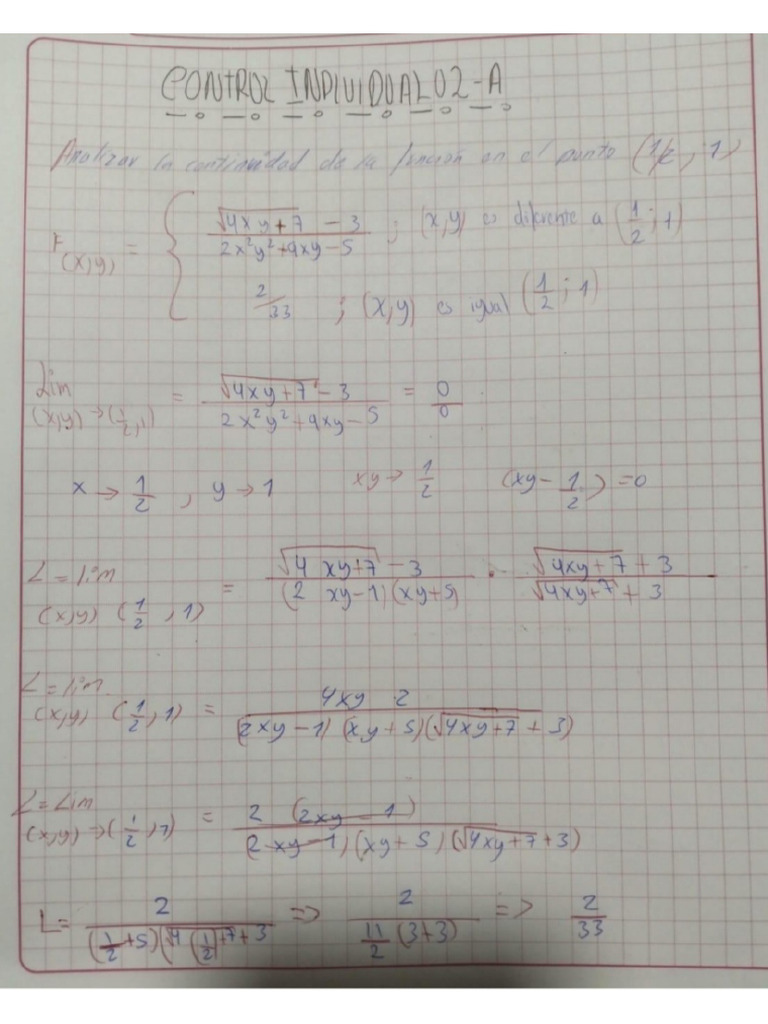 CONTROL INDIVIDUAL 02-A
Analizar la continuidad de la función en el punto (1/2, 1)
F(x,y) = { √(4xy+7) - 3 / 2x²y²+9xy-5 ; (x,y) es diferente a (1/2; 1)
2/33 ; (x,y) es igual (1/2; 1)
Lim (x,y)→(1/2,1) = √(4xy+7) - 3 / 2x²y²+9xy-5 = 0/0
x → 1/2 , y → 1 xy → 1/2 (xy - 1/2) = 0
L = lim (x,y) (1/2, 1) = √(4 xy+7) - 3 / (2 xy-1)(xy+5) · √(4xy+7) + 3 / √(4xy+7) + 3
L = lim (x,y) (1/2, 1) = 4xy 2 / (2xy-1)(xy+5)(√(4xy+7) + 3)
L = Lim (x,y)→(1/2, 1) = 2 (2xy-1) / (2xy-1)(xy+5)(√(4xy+7) + 3)
L = 2 / (1/2+5)(√(4(1/2)+7) + 3 => 2 / 11/2 (3+3) => 2/33